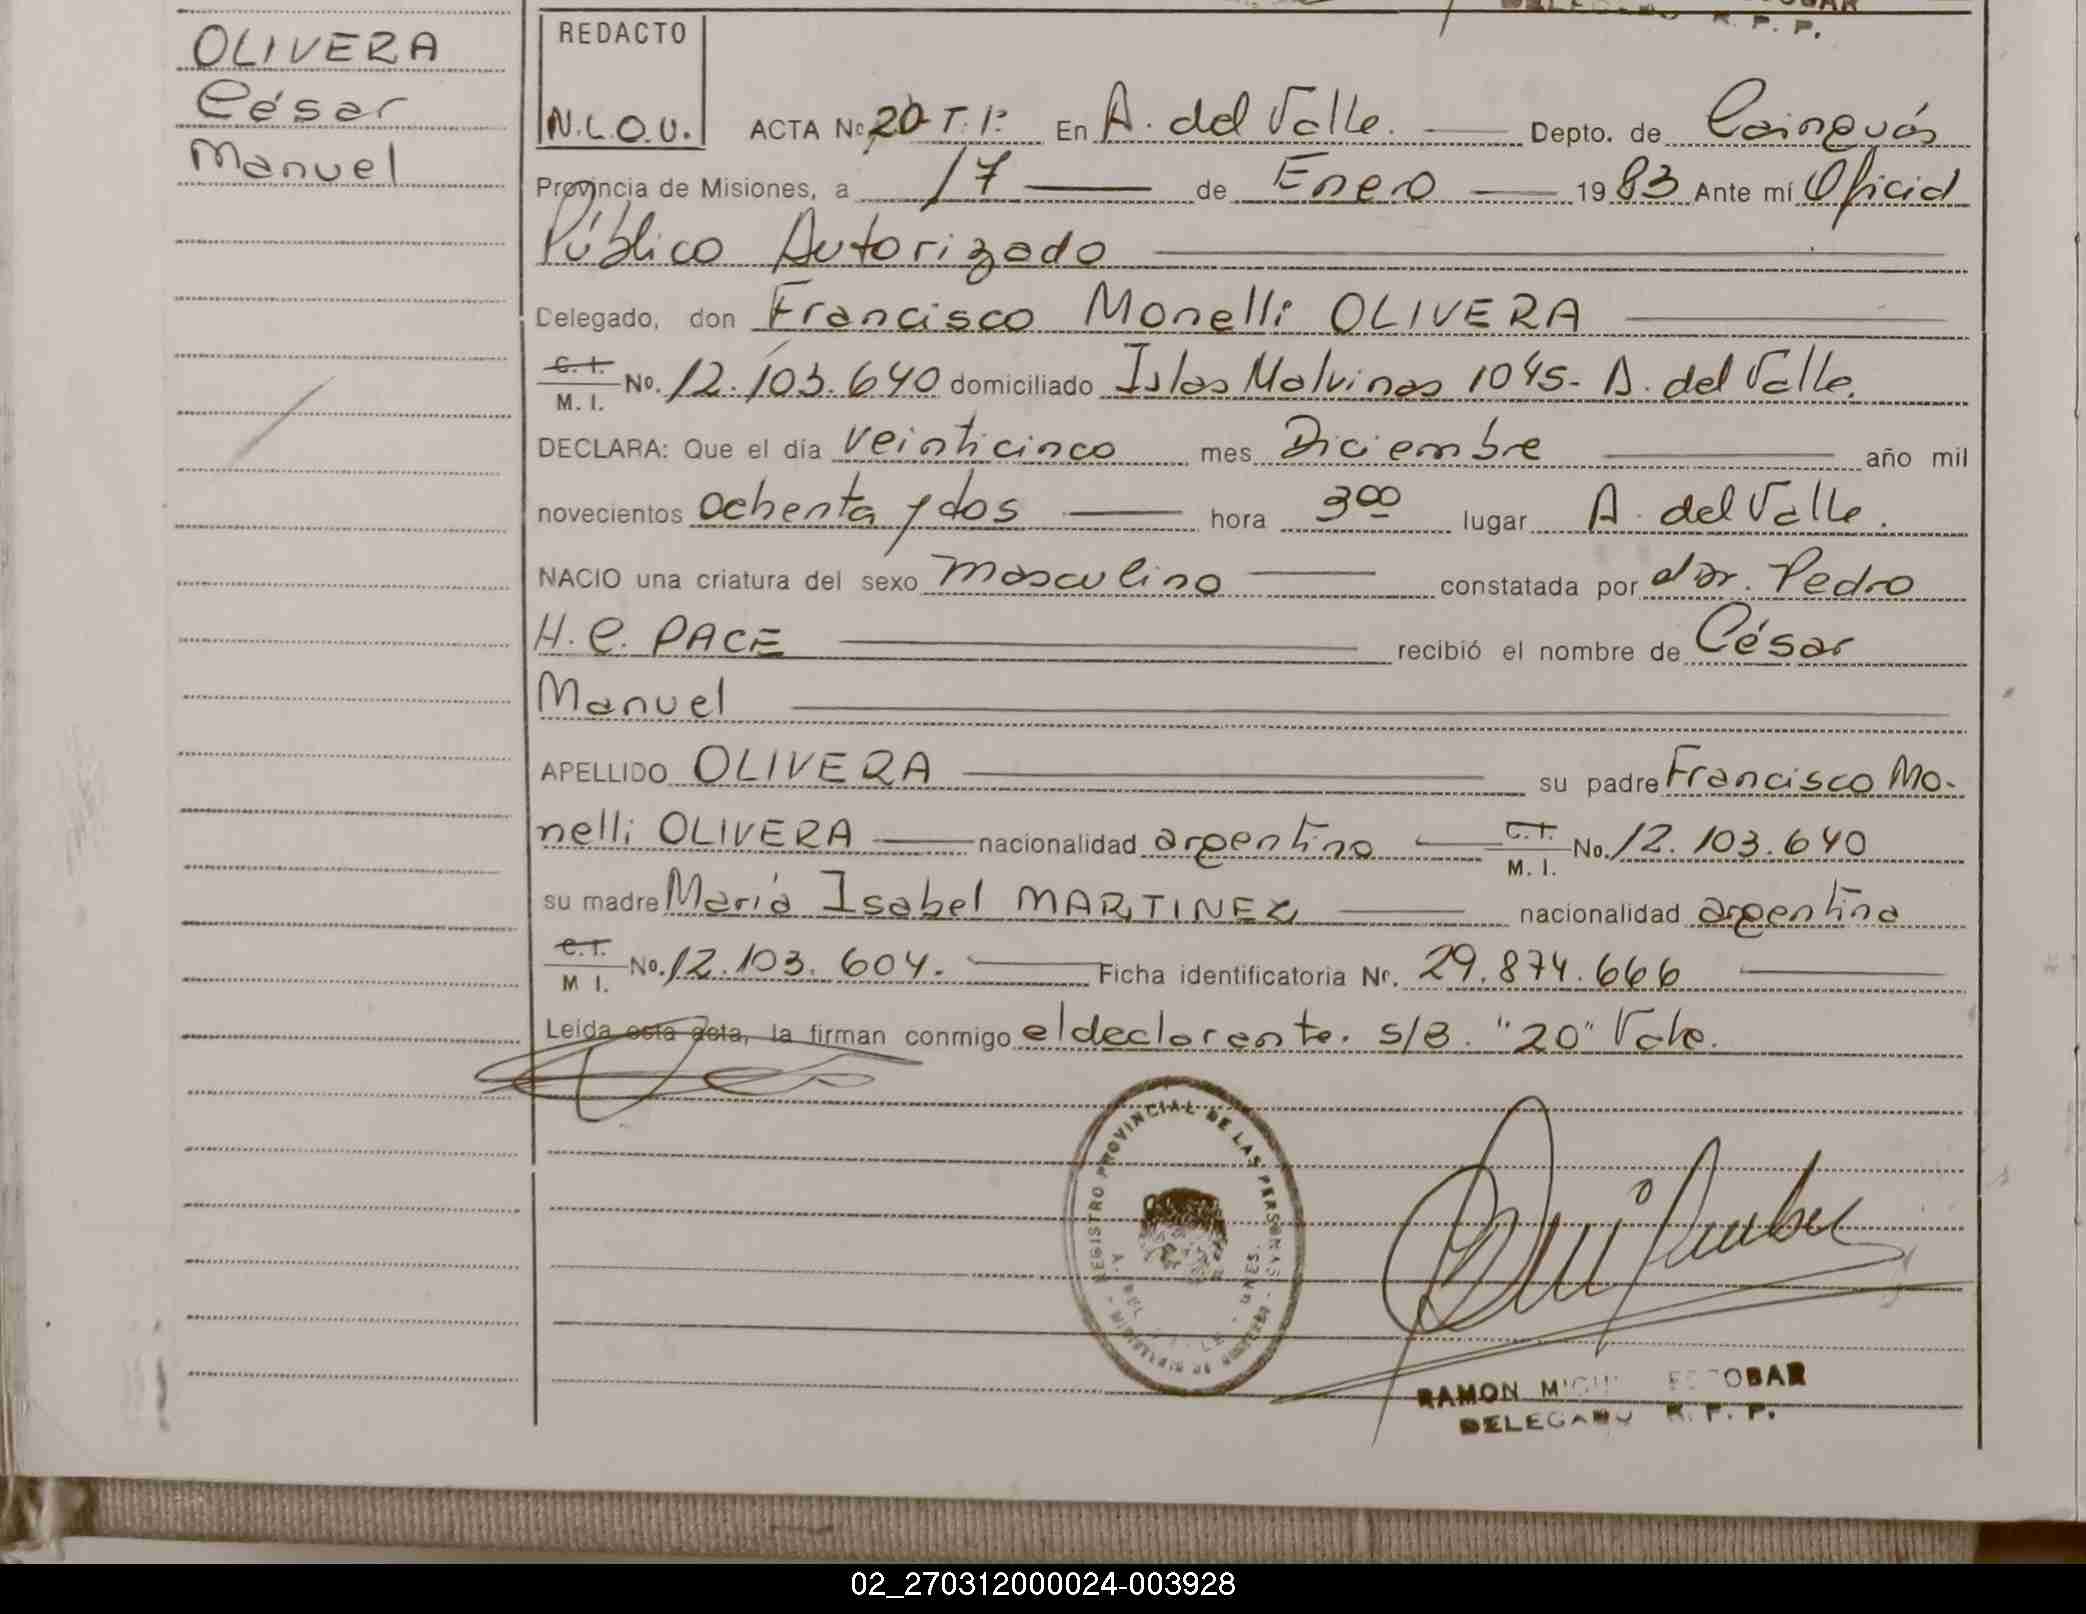 OLIVERA
César
Manuel
REDACTO
N.L.O.U.
ACTA No 20 T. 1º En A. del Valle. Depto. de Cainguás
Provincia de Misiones, a 17 de Enero 1983 Ante mí Oficial
Público Autorizado
Delegado, don Francisco Monelli OLIVERA
C. I. M. I. No. 12.103.640 domiciliado Islas Malvinas 1045- A. del Valle.
DECLARA: Que el día veinticinco mes Diciembre año mil
novecientos ochenta y dos hora 3 00 lugar A. del Valle.
NACIO una criatura del sexo masculino constatada por dor. Pedro
H. C. PACE recibió el nombre de César
Manuel
APELLIDO OLIVERA su padre Francisco Mo-
nelli OLIVERA nacionalidad argentino C. I. M. I. No. 12.103.640
su madre María Isabel MARTINEZ nacionalidad argentina
C. I. M I. No. 12.103.604. Ficha identificatoria Nr. 29.874.666
Leída esta acta, la firman conmigo el declarante. s/B. "20" Vale.
REGISTRO PROVINCIAL DE LAS PERSONAS
RAMON ESCOBAR
DELEGADO R. P. P.
02_270312000024-003928